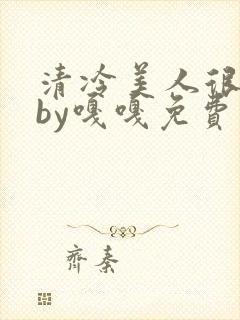 清冷美人很
by嘎嘎免費
齊秦